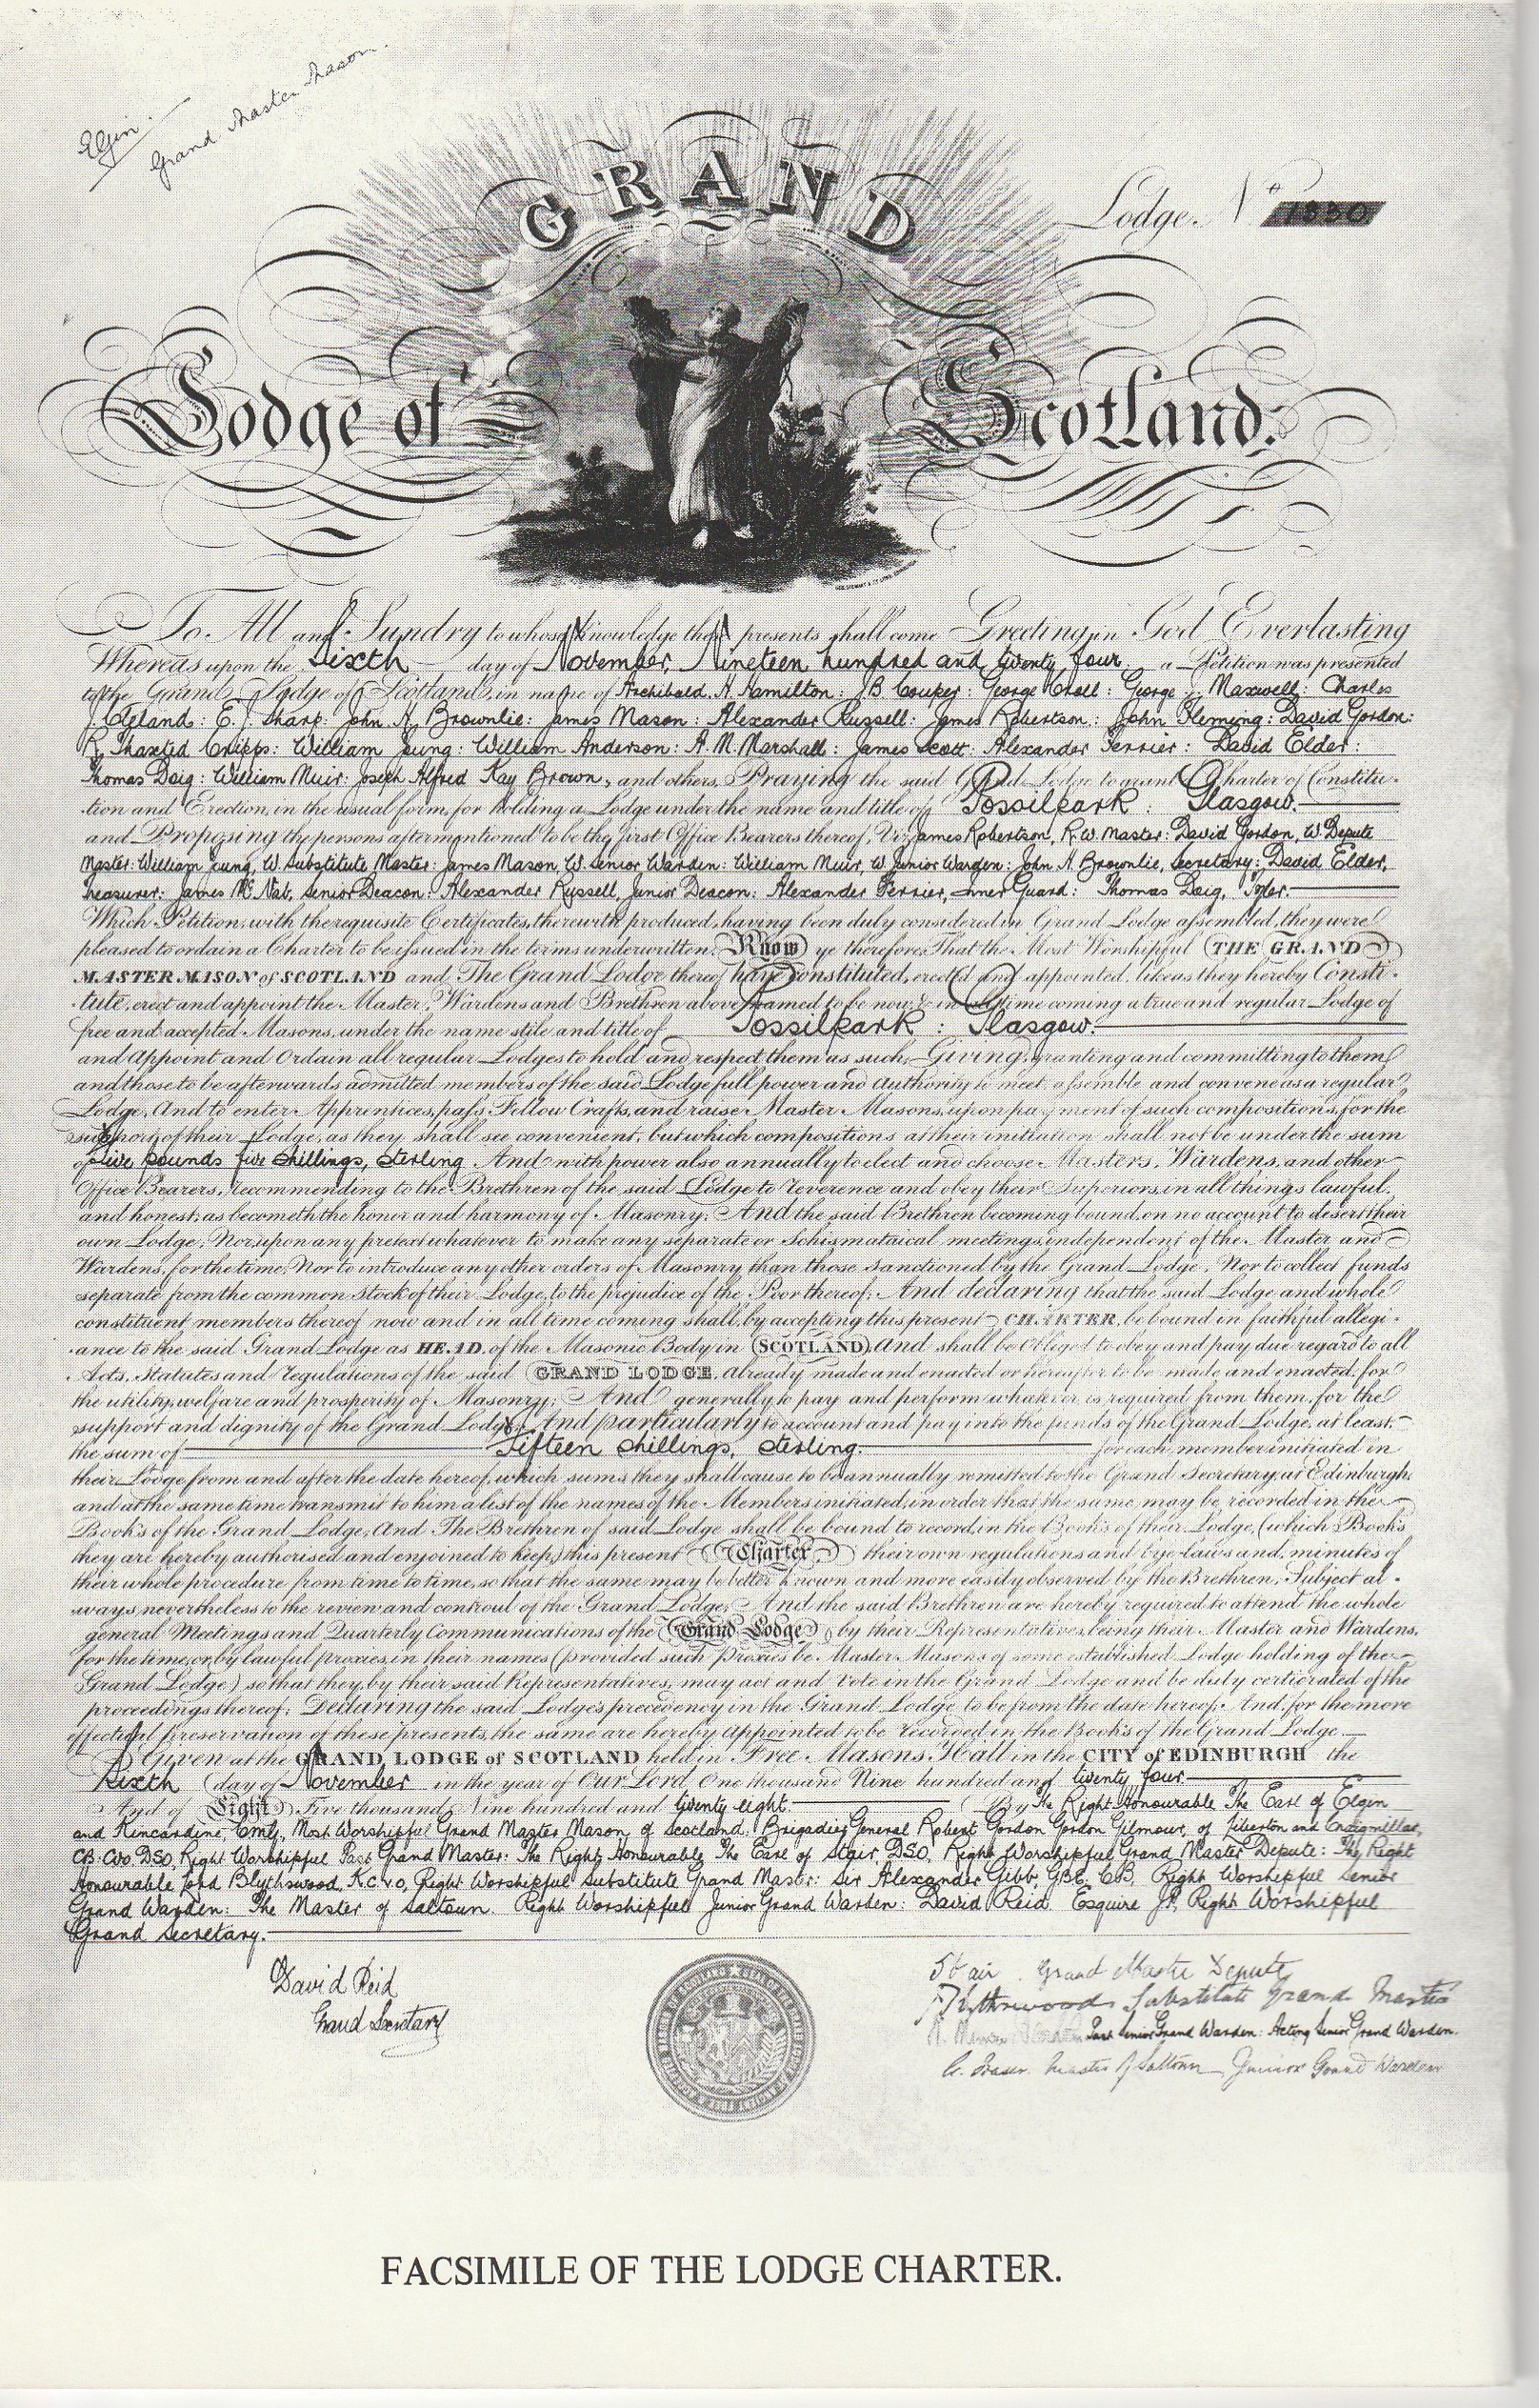 Elgin
Grand Master Mason.
GRAND
Lodge. No. 1330
Lodge of Scotland.
To All and Sundry to whose knowledge these presents shall come Greeting in God Everlasting
Whereas upon the Sixth day of November, Nineteen hundred and twenty four a Petition was presented
to the Grand Lodge of Scotland, in name of Archibald. H. Hamilton: J.B. Couper: George Croll: George J. Maxwell: Charles
J. Cleland: E. J. Sharp: John N. Brownlie: James Mason: Alexander Russell: James Robertson: John Fleming: David Gordon:
R. Thaxted Cripps: William Young: William Anderson: A. M. Marshall: James Scott: Alexander Ferrier: David Elder:
Thomas Doig: William Muir: Joseph Alfred Kay Brown, and others, Praying the said Grand Lodge to grant a Charter of Constitu-
tion and Erection, in the usual form, for holding a Lodge under the name and title of Possilpark: Glasgow.
and Proposing the persons aftermentioned to be the first Office Bearers thereof, Viz. James Robertson, R.W. Master: David Gordon, W. Depute
Master: William Young, W. Substitute Master: James Mason, W. Senior Warden: William Muir, W. Junior Warden: John N. Brownlie, Secretary: David Elder,
Treasurer: James McNab, Senior Deacon: Alexander Russell, Junior Deacon: Alexander Ferrier, Inner Guard: Thomas Doig, Tyler.
Which Petition, with the requisite Certificates, therewith produced, having been duly considered in Grand Lodge assembled, they were
pleased to ordain a Charter to be issued in the terms underwritten. Know ye therefore, That the Most Worshipful THE GRAND
MASTER MASON of SCOTLAND and The Grand Lodge thereof have constituted, erected and appointed, likeas they hereby Consti-
tute, erect and appoint the Master, Wardens and Brethren above named to be now & in all time coming a true and regular Lodge of
free and accepted Masons, under the name style and title of Possilpark: Glasgow.
and Appoint and Ordain all regular Lodges to hold and respect them as such, Giving, granting and committing to them
and those to be afterwards admitted members of the said Lodge full power and authority to meet, assemble and convene as a regular
Lodge, And to enter Apprentices, pass Fellow Crafts, and raise Master Masons, upon payment of such compositions, for the
support of their Lodge, as they shall see convenient, but which compositions at their initiation shall not be under the sum
of Five pounds five shillings, sterling. And with power also annually to elect and choose Masters, Wardens, and other
Office Bearers, recommending to the Brethren of the said Lodge to reverence and obey their Superiors, in all things lawful,
and honest, as becometh the honor and harmony of Masonry; And the said Brethren becoming bound, on no account to desert their
own Lodge, Nor, upon any pretext whatever to make any separate or Schismatical meetings, independent of the Master and
Wardens, for the time, Nor to introduce any other orders of Masonry than those sanctioned by the Grand Lodge, Nor to collect funds
separate from the common stock of their Lodge, to the prejudice of the Poor thereof; And declaring that the said Lodge and whole
constituent members thereof now and in all time coming shall, by accepting this present CHARTER, be bound in faithful allegi-
ance to the said Grand Lodge as HEAD of the Masonic Body in SCOTLAND, And shall be obliged to obey and pay due regard to all
Acts, Statutes and regulations of the said GRAND LODGE, already made and enacted or hereafter to be made and enacted, for
the utility, welfare and prosperity of Masonry; And generally to pay and perform whatever is required from them, for the
support and dignity of the Grand Lodge, And particularly to account and pay into the funds of the Grand Lodge, at least,
the sum of Fifteen shillings, sterling. for each member initiated in
their Lodge from and after the date hereof, which sums they shall cause to be annually remitted to the Grand Secretary, at Edinburgh,
and at the same time transmit to him a list of the names of the Members initiated, in order that the same may be recorded in the
Books of the Grand Lodge; And The Brethren of said Lodge shall be bound to record, in the Books of their Lodge, (which Books
they are hereby authorised and enjoined to keep,) this present Charter, their own regulations and bye-laws and, minutes of
their whole procedure from time to time, so that the same may be better known and more easily observed by the Brethren, Subject al-
ways, nevertheless to the review and controul of the Grand Lodge; And the said Brethren are hereby required to attend the whole
general Meetings and Quarterly Communications of the Grand Lodge, by their Representatives, being their Master and Wardens,
for the time, or by lawful proxies, in their names (provided such Proxies be Master Masons of some established Lodge holding of the
Grand Lodge) so that they, by their said Representatives, may act and vote in the Grand Lodge and be duly certiorated of the
proceedings thereof; Declaring the said Lodge's precedency in the Grand Lodge to be from the date hereof; And, for the more
effectual preservation of these presents, the same are hereby appointed to be recorded in the Books of the Grand Lodge.
Given at the GRAND LODGE of SCOTLAND held in Free Masons Hall in the CITY of EDINBURGH the
Sixth day of November in the year of Our Lord One thousand Nine hundred and twenty four
And of Light Five thousand Nine hundred and twenty eight. By The Right Honourable The Earl of Elgin
and Kincardine, CMG, Most Worshipful Grand Master Mason of Scotland: Brigadier General Robert Gordon Gordon Gilmour, of Liberton and Craigmillar,
CB: CVO. DSO, Right Worshipful Past Grand Master: The Right Honourable The Earl of Stair, DSO, Right Worshipful Grand Master Depute: The Right
Honourable Lord Blythswood, K.C.V.O, Right Worshipful Substitute Grand Master: Sir Alexander Gibb, GBE, CB, Right Worshipful Senior
Grand Warden: The Master of Saltoun. Right Worshipful Junior Grand Warden: David Reid Esquire JP, Right Worshipful
Grand Secretary.
David Reid
Grand Secretary
Stair. Grand Master Depute
Blythswood. Substitute Grand Master
Past Senior Grand Warden: Acting Senior Grand Warden.
A. Fraser. Master of Saltoun – Junior Grand Warden
FACSIMILE OF THE LODGE CHARTER.